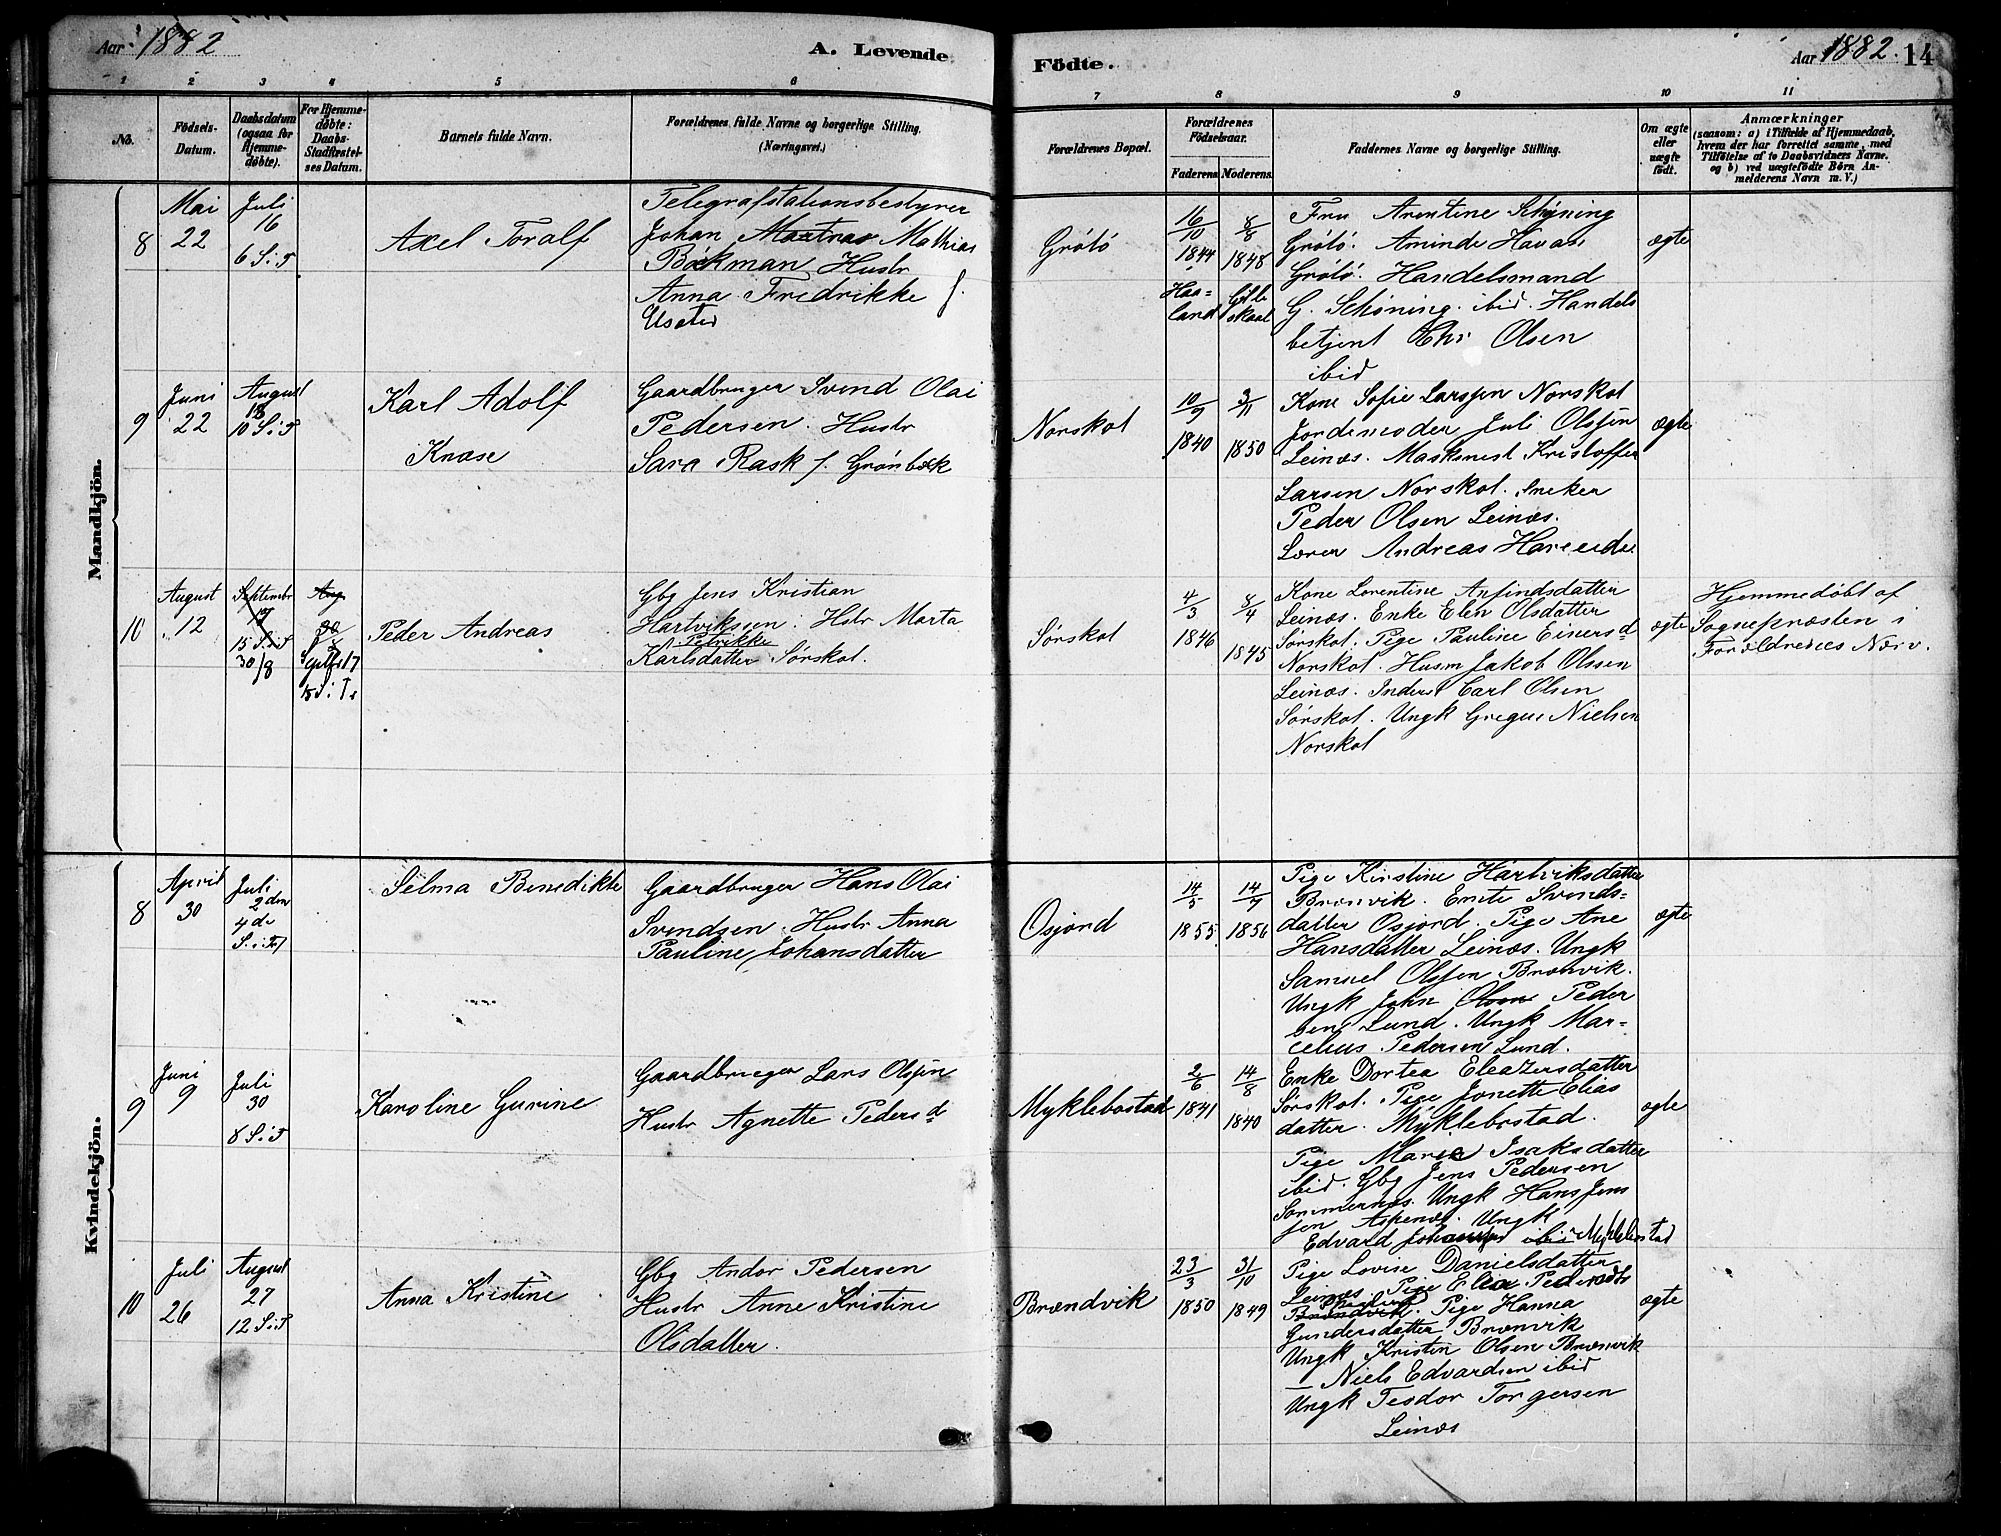 Aar 1882
A. Levende
Födte.
Aar 1882. 14
1 2 3 4 5 6 7 8 9 10 11
No.
Födsels-
Datum.
Daabsdatum
(ogsaa for
Hjemme-
döbte).
For Hjemme-
döbte:
Daabs-
Stadfæstel-
ses Datum.
Barnets fulde Navn.
Forældrenes fulde Navne og borgerlige Stilling.
(Næringsvei.)
Forældrenes Bopæl.
Forældrenes
Födselsaar.
Faderens. Moderens.
Faddernes Navne og borgerlige Stilling.
Om ægte
eller
uægte
födt.
Anmærkninger
(saasom: a) i Tilfælde af Hjemmedaab,
hvem der har forrettet samme, med
Tilföielse af to Daabsvidners Navne.
og b) ved uægtefödte Börn An-
melderens Navn m. V.)
Mandkjön.
8
Mai
22
Juli
16
6 S. i T
Axel Toralf
Telegrafstationsbestyrer
Johan Mathias
Bøckman Hustr
Anna Fredrikke f.
Grótó
16/10
1844
Haa-
land
8/8
1848
Gilde
skaal
Fru Arentine Schøning
Grótó. Aminde
Grótó. Handelsmand
G. Schóning. ibid. Handels
betjent Chr Olsen
ibid
ægte
9
Juni
22
August
10 S. i T
Karl Adolf
Knæse
Gaardbruger Svend Olai
Pedersen. Hustr
Sara Rask f. Grónbæk
Norskot
10/9
1840
3/11
1850
Kone Sofie Larssen Norskot
Jordemoder Juli Olssen
Leinæs. Maskinist Kristoffer
Larsen Norskot. Sneker
Peder Olsen Leinæs.
Lærer Andreas
ægte
10
August
12
Septembr
17
15 S. i T
30/8
Aug
30
Septbr 17
15 S. i T.
Peder Andreas
Gbg Jens Kristian
Hartvikssen. Hstr Marta
Petrikke
Karlsdatter Sørskot.
Sørskot
4/3
1846
8/4
1845
Kone Lorentine Arfindsdatter
Leinæs. Enke Elen Olsdatter
Sørskot. Pige Pauline Einersd
Norskot. Husm Jakob Olssen
Leinæs. Inderst Carl Olsen
Sørskot. Ungk Gregus Nielsen
Norskot
ægte
Hjemmedøbt af
Sognepræsten i
Forældrenes Nærv.
Kvindekjön.
8
April
30
Juli
2den
4de
S. i T
Selma Benedikte
Gaardbruger Hans Olai
Svendsen. Hustr Anna
Pauline Johansdatter
Osjord
14/5
1855
14/7
1856
Pige Kirstine Hartviksdatter
Brænvik. Svends-
datter Osjord. Pige Ane
Hansdatter Leinæs. Ungk
Samuel Olssen Brænvik.
Ungk John Olsen Peder
sen Lund. Ungk Mar-
celius Pedersen Lund.
ægte
9
Juni
9
Juli
30
8 S. i T
Karoline Gurine
Gaardbruger Lars Olssen
Hustr Agnette Pedersd
Myklebostad
2/6
1841
14/8
1840
Enke Dortea Eleazersdatter
Sørskot. Pige Jonette Elias
datter. Myklebostad.
Pige Marie Isaksdatter
ibid. Gbg Jens Pedersen
Sommernæs. Ungk Hans Jens
sen Aspenæs. Ungk
Edvard ibi Myklebostad
ægte
10
Juli
26
August
27
12 S. i T
Anna Kristine
Gbg Andor Pedersen
Hustr Anne Kristine
Olsdatter.
Brændvik
23/3
1850
31/10
1849
Pige Lovise Danielsdatter
Leinæs. Pige Elea
Brændvik. Pige Hanna
Gundersdatter Brænvik
Ungk Kristen Olsen Brænvik
— Niels Edvardsen ibid
Ungk Teodor Torgersen
Leinæs
ægte